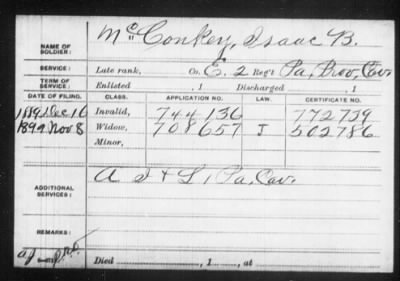 NAME OF SOLDIER: McConkey, Isaac B.
SERVICE: Late rank, Co. E, 2 Reg't Pa. Prov. Cav.
TERM OF SERVICE: Enlisted , 1 Discharged , 1
DATE OF FILING. CLASS. APPLICATION NO. LAW. CERTIFICATE NO.
1889 Dec 16 Invalid, 744136 772739
1899 Nov 8 Widow, 708657 J 502786
Minor,
ADDITIONAL SERVICES: A 1 Pa. Cav.
REMARKS:
Died , 1 , at